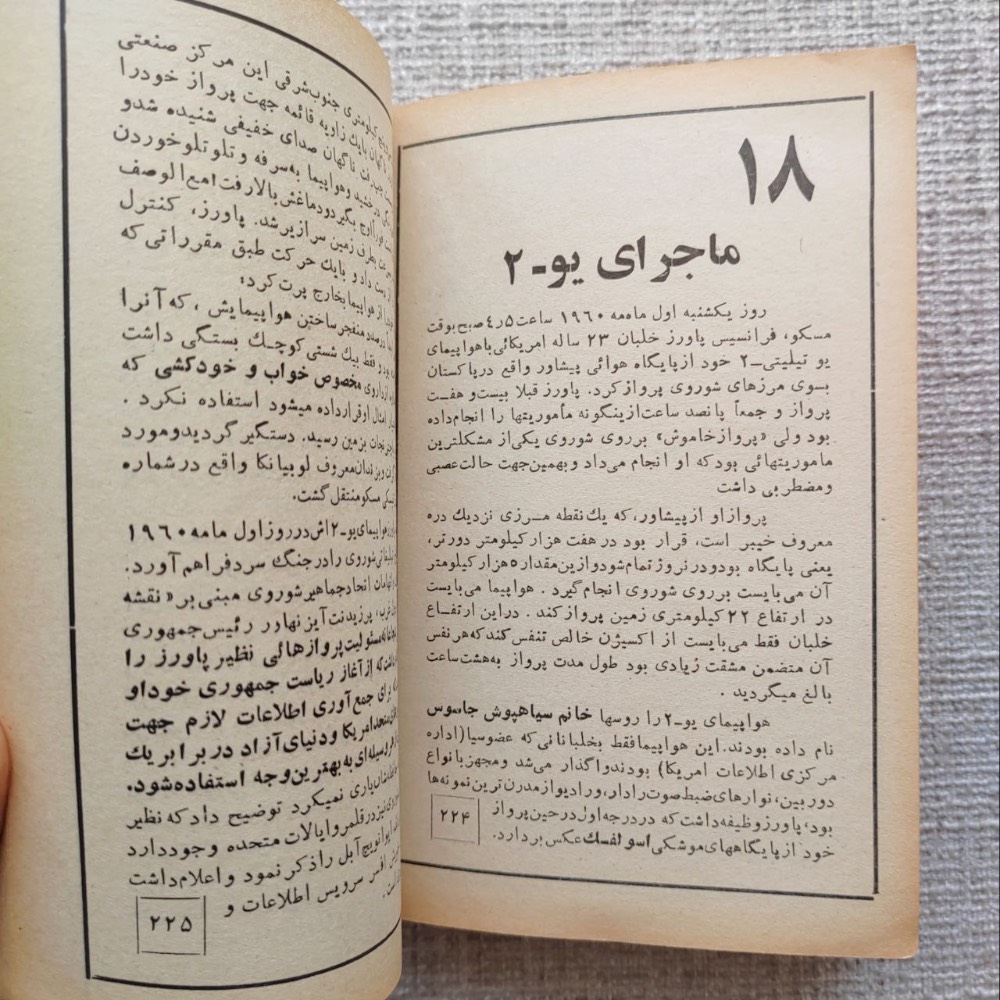 ۱۸
ماجرای یو-۲
روز یکشنبه اول ماه‌مه ۱۹۶۰ ساعت ۵ر۴ صبح بوقت
مسکو، فرانسیس پاورز خلبان ۲۳ ساله امریکائی با هواپیمای
یو تیلیتی-۲ خود از پایگاه هوائی پیشاور واقع در پاکستان
بسوی مرزهای شوروی پرواز کرد. پاورز قبلا بیست و هفت
پرواز و جمعاً پانصد ساعت ازینگونه مأموریتها را انجام داده
بود ولی «پرواز خاموش» بر روی شوروی یکی از مشکلترین
ماموریتهائی بود که او انجام می‌داد و بهمین جهت حالت عصبی
و مضطربی داشت
پرواز او از پیشاور، که یك نقطه مرزی نزدیك دره
معروف خیبر است، قرار بود در هفت هزار کیلومتر دورتر،
یعنی پایگاه بودو در نروژ تمام شود و ازین مقدار ۵ هزار کیلومتر
آن می‌بایست بر روی شوروی انجام گیرد. هواپیما می‌بایست
در ارتفاع ۲۲ کیلومتری زمین پرواز کند. در این ارتفاع
خلبان فقط می‌بایست از اکسیژن خالص تنفس کند که هر نفس
آن متضمن مشقت زیادی بود طول مدت پرواز به هشت ساعت
بالغ میگردید.
هواپیمای یو-۲ را روسها خانم سیاهپوش جاسوس
نام داده بودند. این هواپیما فقط بخلبانانی که عضو سیا (اداره
مرکزی اطلاعات امریکا) بودند واگذار می‌شد و مجهز با نواع
دوربین، نوارهای ضبط صوت رادار، و رادیو از مدرن‌ترین نمونه‌ها
بود، پاورز وظیفه داشت که در درجه اول در حین پرواز
خود از پایگاههای موشکی اسولفسك عکس بردارد.
۲۲۴
کیلومتری جنوب‌شرقی این مرکز صنعتی
ناگهان بایك زاویه قائمه جهت پرواز خود را
ناگهان صدای خفیفی شنیده شد و
درخشید و هواپیما به‌سرفه و تلوتلو خوردن
اوج بگیرد و دماغش بالا رفت امع‌الوصف
بطرف زمین سرازیر شد. پاورز، کنترل
داد و بایك حرکت طبق مقرراتی که
از هواپیما بخارج پرت کرد:
درصدد منفجر ساختن هواپیمایش، که آنرا
بود و فقط بیك شستی کوچك بستگی داشت
داروی مخصوص خواب و خودکشی که
امثال او قرار داده میشود استفاده نکرد.
نجات بزمین رسید. دستگیر گردید و مورد
و بزندان معروف لوبیانکا واقع در شماره
مسکو منتقل گشت.
هواپیمای یو-۲اش در روز اول ماه‌مه ۱۹۶۰
شوروی را در جنگ سرد فراهم آورد.
اتحاد جماهیر شوروی مبنی بر «نقشه
پرزیدنت آیزنهاور رئیس‌جمهوری
مسئولیت پروازهائی نظیر پاورز را
که از آغاز ریاست جمهوری خود او
برای جمع‌آوری اطلاعات لازم جهت
متحد امریکا و دنیای آزاد در برابر یك
هر وسیله‌ای به بهترین وجه استفاده شود.
یاری نمیکرد توضیح داد که نظیر
نیز در قلمرو ایالات متحده وجود دارد
ایوانویچ آبل را ذکر نمود و اعلام داشت
افسر سرویس اطلاعات و
۲۲۵